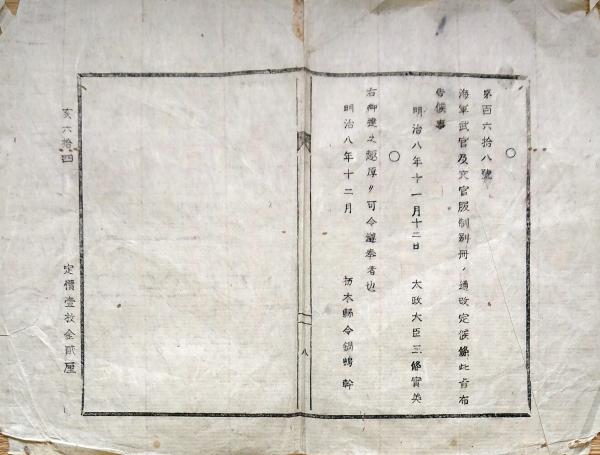 ○
第百六拾八號
海軍武官及文官服制別冊ノ通改定候條此旨布
告候事
明治八年十一月十二日 太政大臣三條實美
○
右御達之趣厚ク可令遵奉者也
明治八年十二月 栃木縣令鍋嶋幹
八
亥六拾四 定價壹枚金貳厘